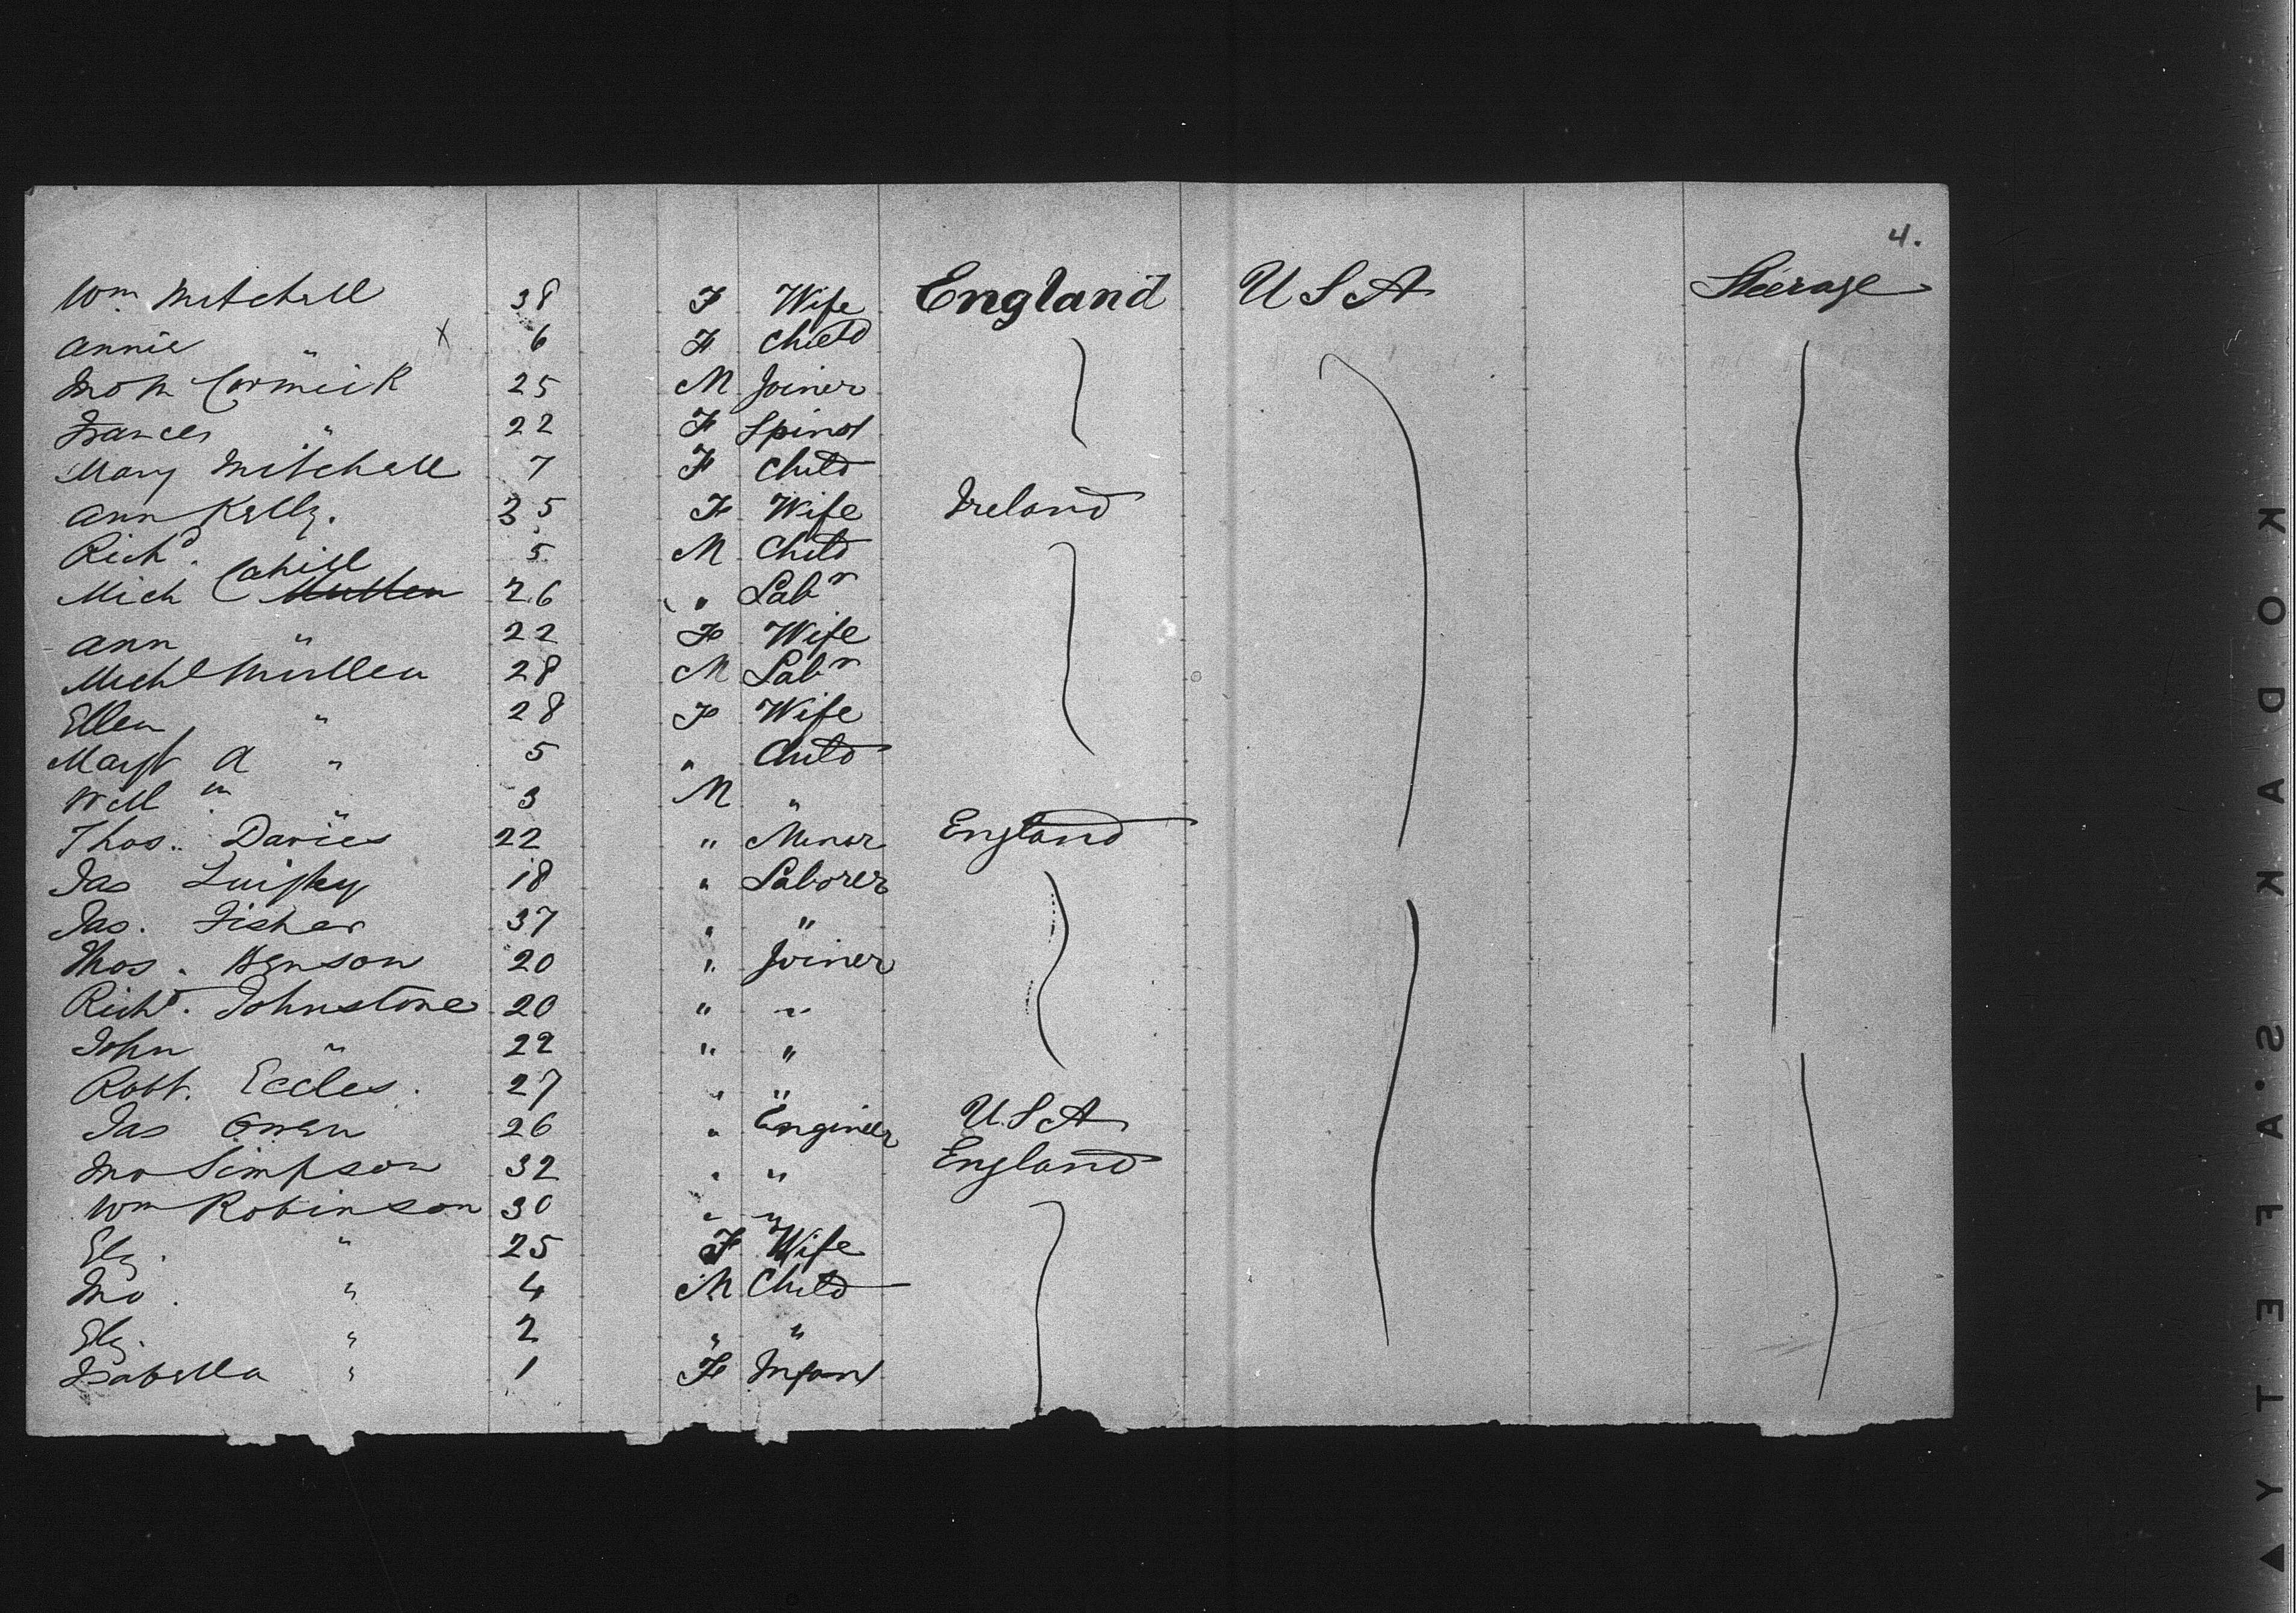 4.
Wm Mitchell 38 F Wife England U S A Steerage
Annie " x 6 F Child
Jno Mc Cormick 25 M Joiner
Frances " 22 F Spinst
Mary Mitchell 7 F Child
Ann Kelly. 35 F Wife Ireland
Richd. 5 M Child
Cahill
Mich Mullen 26 " Labr
Ann " 22 F Wife
Michl Mullen 28 M Labr
Ellen " 28 F Wife
Margt A " 5 " Child
Will " 3 M "
Thos. Davies 22 " Minor England
Jas 18 " Laborer
Jas. Fisher 37 " "
Thos. Henson 20 " Joiner
Richd. Johnstone 20 " "
John " 22 " "
Robt. Eccles. 27 " "
Jas Owen 26 " Engineer U.S.A
Jno Simpson 32 " " England
Wm Robinson 30 " "
Elz. " 25 F Wife
Jno. " 4 M Child
Elz. " 2 " "
Isabella " 1 F Infant
KODAK S.AFETY ▲